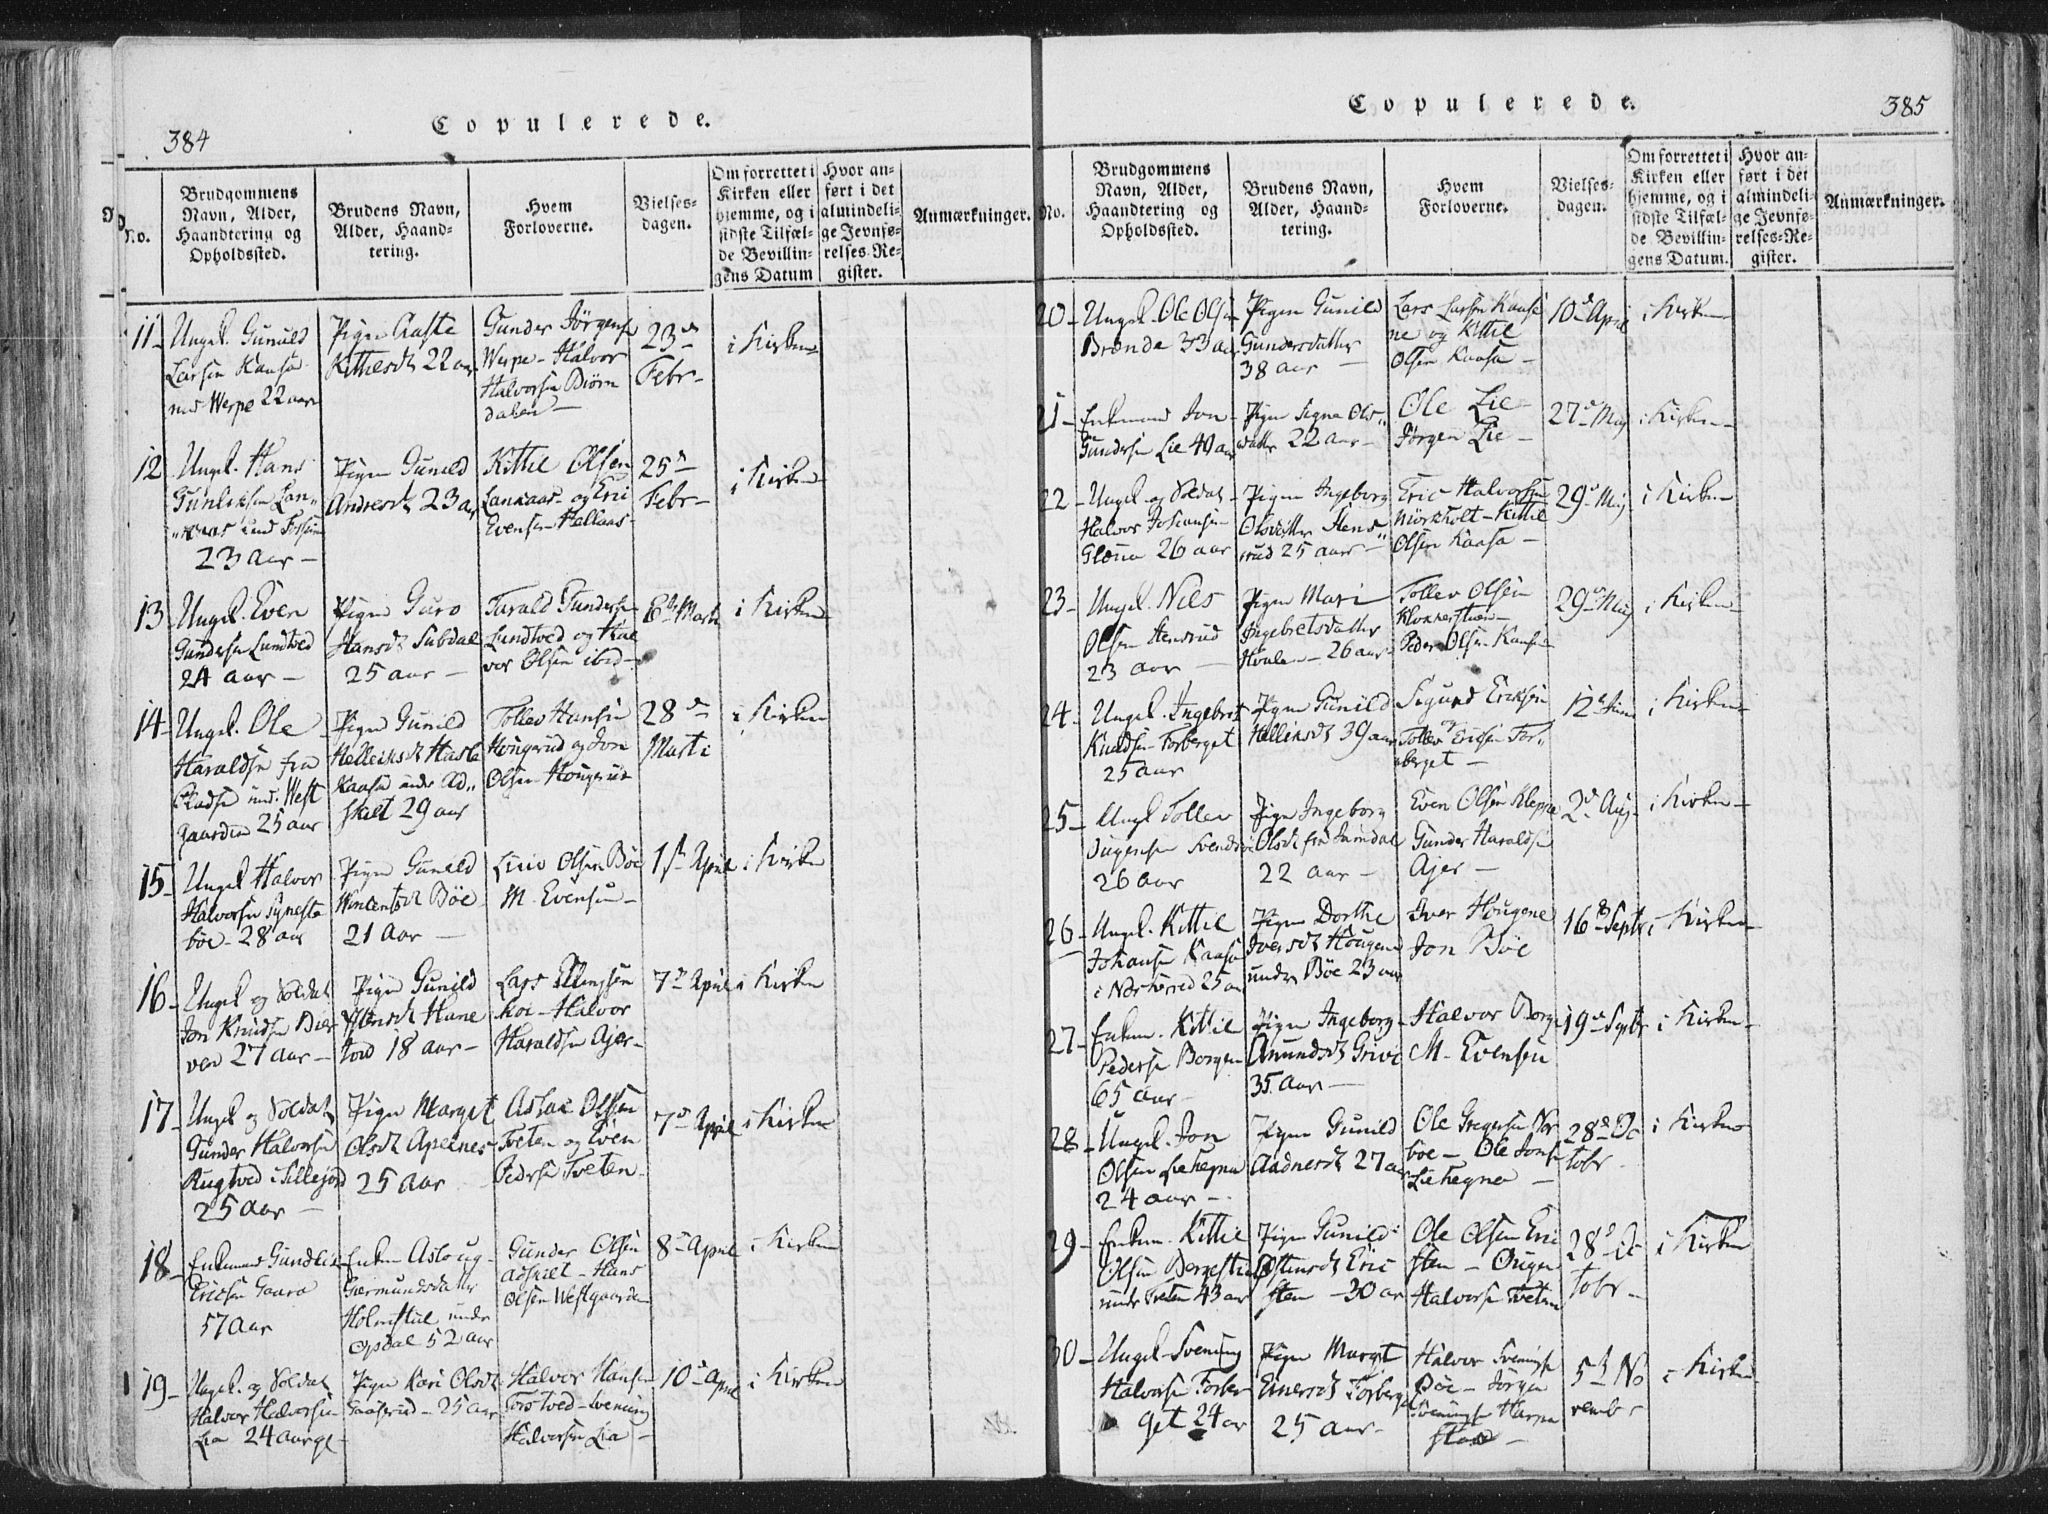 384
Copulerede.
No.
Brudgommens
Navn, Alder,
Haandtering og
Opholdssted.
Brudens Navn,
Alder, Haand-
tering.
Hvem
Forloverne.
Vielses-
dagen.
Om forrettet i
Kirken eller
hjemme, og i
sidste Tilfæl-
de Bevillin-
gens Datum
Hvor an-
ført i det
almindeli-
ge Jevnfø-
relses-Re-
gister.
Anmærkninger.
11 Ungk. Gunuld
Larsen Kaasa
und. Werpe 22 aar
Pigen Aaste
Kittilsdt 22 aar
Gunder Jörgens
Werpe - Halvor
Halvorsen Biörn
dalen -
23de
Febr -
i Kirken
12 Ungk. Hans
Gunliksen Lan"
23 aar -
Pigen Gunild
Andresdt 23 aar
Kittil Olsen
Lanaar - og Eric
Evensen Hellaas
25de
Febr -
i Kirken
13 Ungk. Even
Gundersen Lundtved
24 aar -
Pigen Guro
Hansdt Subdal
25 aar -
Tarald Gundersen
Lundtved og Hal
vor Olsen ibid -
6te Marti
i Kirken
14 Ungk. Ole
Haraldsen fra
und. West
gaarden 25 aar
Pigen Gunild
Helleiksdt Hasle
Kaasa under Ad"
skilt 29 aar
Tollev Hansen
Hougerud og Jon
Olsen Hougerud
28de
Marti
i Kirken
15 Ungk. Halvor
Halvorsen Synesta
böe - 28 aar
Pigen Gunild
Wincentsdt Böe
21 Aar -
Olsen Böe
M. Evensen -
1ste April
i Kirken
16 Ungk og Soldat
Jon Knudsen Bier
ven 27 aar -
Pigen Gunild
Hane
tved 18 aar -
Lars Ellingsen
Moe - Halvor
Haraldsen Ajer -
7de April
i Kirken
17 Ungk og Soldat
Gunder Halvorsen
Rugtved i Sillejord
25 aar -
Pigen Marget
Olsdt Apelnes
25 Aar
Aslac Olsen
Tveten og Even
Pedersen Tveten
7de April
i Kirken
18 Enkemand Gundleik
Ericsen Gaara
57 Aar
Enken Asloug
Giermundsdatter
Holmstul under
Opdal 52 aar
Gunder Olsen
Adskilt - Hans
Olsen Westgaarden
8de April
i Kirken
19 Ungk. og Soldat
Halvor Halvorsen
Lia 24 aar gl
Pigen Kari Olsdt
Gaaserud - 25 aar
Halvor Hansen
Torstved - Svenung
Halvorsen Lia -
10de April
i Kirken
385
Copulerede.
No.
Brudgommens
Navn, Alder,
Haandtering og
Opholdssted.
Brudens Navn,
Alder, Haand-
tering.
Hvem
Forloverne.
Vielses-
dagen.
Om forrettet i
Kirken eller
hjemme, og i
sidste Tilfæl-
de Bevillin-
gens Datum.
Hvor an-
ført i det
almindeli-
ge Jevnfø-
relses-Re-
gister.
Anmærkninger.
20 Ungk. Ole Olsen
Brende 33 aar
Pigen Gunild
Gundersdatter
38 aar -
Lars Larsen Kaase
ne og Kittil
Olsen Kaasa -
10de April
i Kirken
21 Enkemand Jon
Gundersen Lie 40 aar
Pigen Signe Ols"
datter 22 aar -
Ole Lie
Jörgen Lie -
27de Maj
i Kirken
22 Ungk. og Soldat
Halvor Johansen
26 aar
Pigen Ingeborg
Olsdatter Stens"
rud 25 aar -
Eric Halvorsen
Mörkholt - Kittil
Olsen Kaasa -
29de Maj
i Kirken
23 Ungk. Niels
Olsen Stensrud
23 aar -
Pigen Mari
Ingebretsdatter
- 26 aar
Tollev Olsen
Klokkerstuen -
Peder Olsen Kaasa
29de Maj
i Kirken
24 Ungk. Ingebret
Knudsen Forberget
25 aar
Pigen Gunild
Helliksdt 39 aar
Sigurd Eriksen
og
Tollev Ericsen For"
berget -
12de Juni
i Kirken
25 Ungk Tollev
26 Aar
Pigen Ingeborg
Olsdt fra
22 aar -
Even Olsen Kleppe
Gunder Haraldsen
Ajer -
2de Aug
i Kirken
26 Ungk. Kittil
Johansen Kaasa
i Nesherred 25 aar
Pigen Dorthe
Iversdt Hougene
under Böe 23 aar
Iver Hougene
Jon Böe
16de Septr
i Kirken
27 Enkem. Kittil
Pedersen Borgen
65 aar -
Pigen Ingeborg
Amundsdt Grive
35 Aar -
Halvor Borge
M. Evensen
19de Septr
i Kirken
28 Ungk. Jon
Olsen Liehegna
24 aar -
Pigen Gunild
Aadnesdt 27 aar
Ole Gregersen Nor
böe - Ole Jonsen
Liehegna -
28de Oc
tobr
i Kirken
29 Enkem. Kittil
Olsen
under Tveten 43 aar
Pigen Gunild
Östensdt Eric
sten - 30 ar
Ole Olsen Eric
sten - Öugen
Halvorsen Tveten
28de Oc
tobr -
i Kirken
30 Ungk - Svenung
Halvorsen Forber
get 24 ar
Pigen Marget
Einersdt Forberget
25 aar -
Halvor Svenungsen
Böe - Jörgen
Svenungsen Harpe
stad -
5te No
vembr
i Kirken